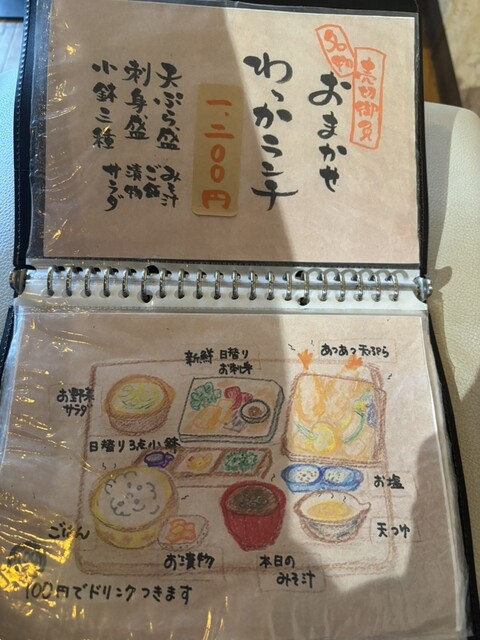 名物
売切御免
おまかせ
わっかランチ
一、二〇〇円
天ぷら盛
刺身盛
小鉢三種
みそ汁
ご飯
漬物
サラダ
新鮮 日替り
お刺身
あつあつ天ぷら
お野菜
サラダ
日替り3点小鉢
お塩
ごはん
お漬物
本日の
みそ汁
天つゆ
100円でドリンクつきます